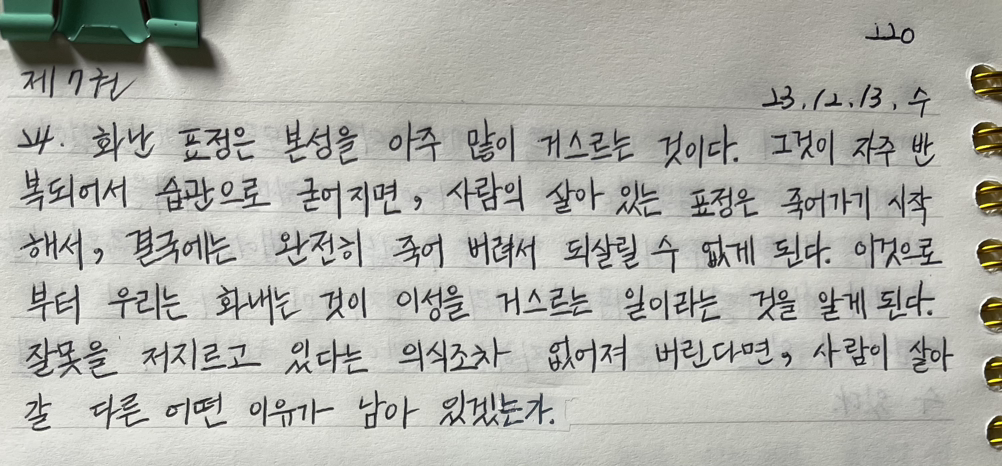 220
제7권
23.12.13. 수
24. 화난 표정은 본성을 아주 많이 거스르는 것이다. 그것이 자주 반
복되어서 습관으로 굳어지면, 사람의 살아 있는 표정은 죽어가기 시작
해서, 결국에는 완전히 죽어 버려서 되살릴 수 없게 된다. 이것으로
부터 우리는 화내는 것이 이성을 거스르는 일이라는 것을 알게 된다.
잘못을 저지르고 있다는 의식조차 없어져 버린다면, 사람이 살아
갈 다른 어떤 이유가 남아 있겠는가.